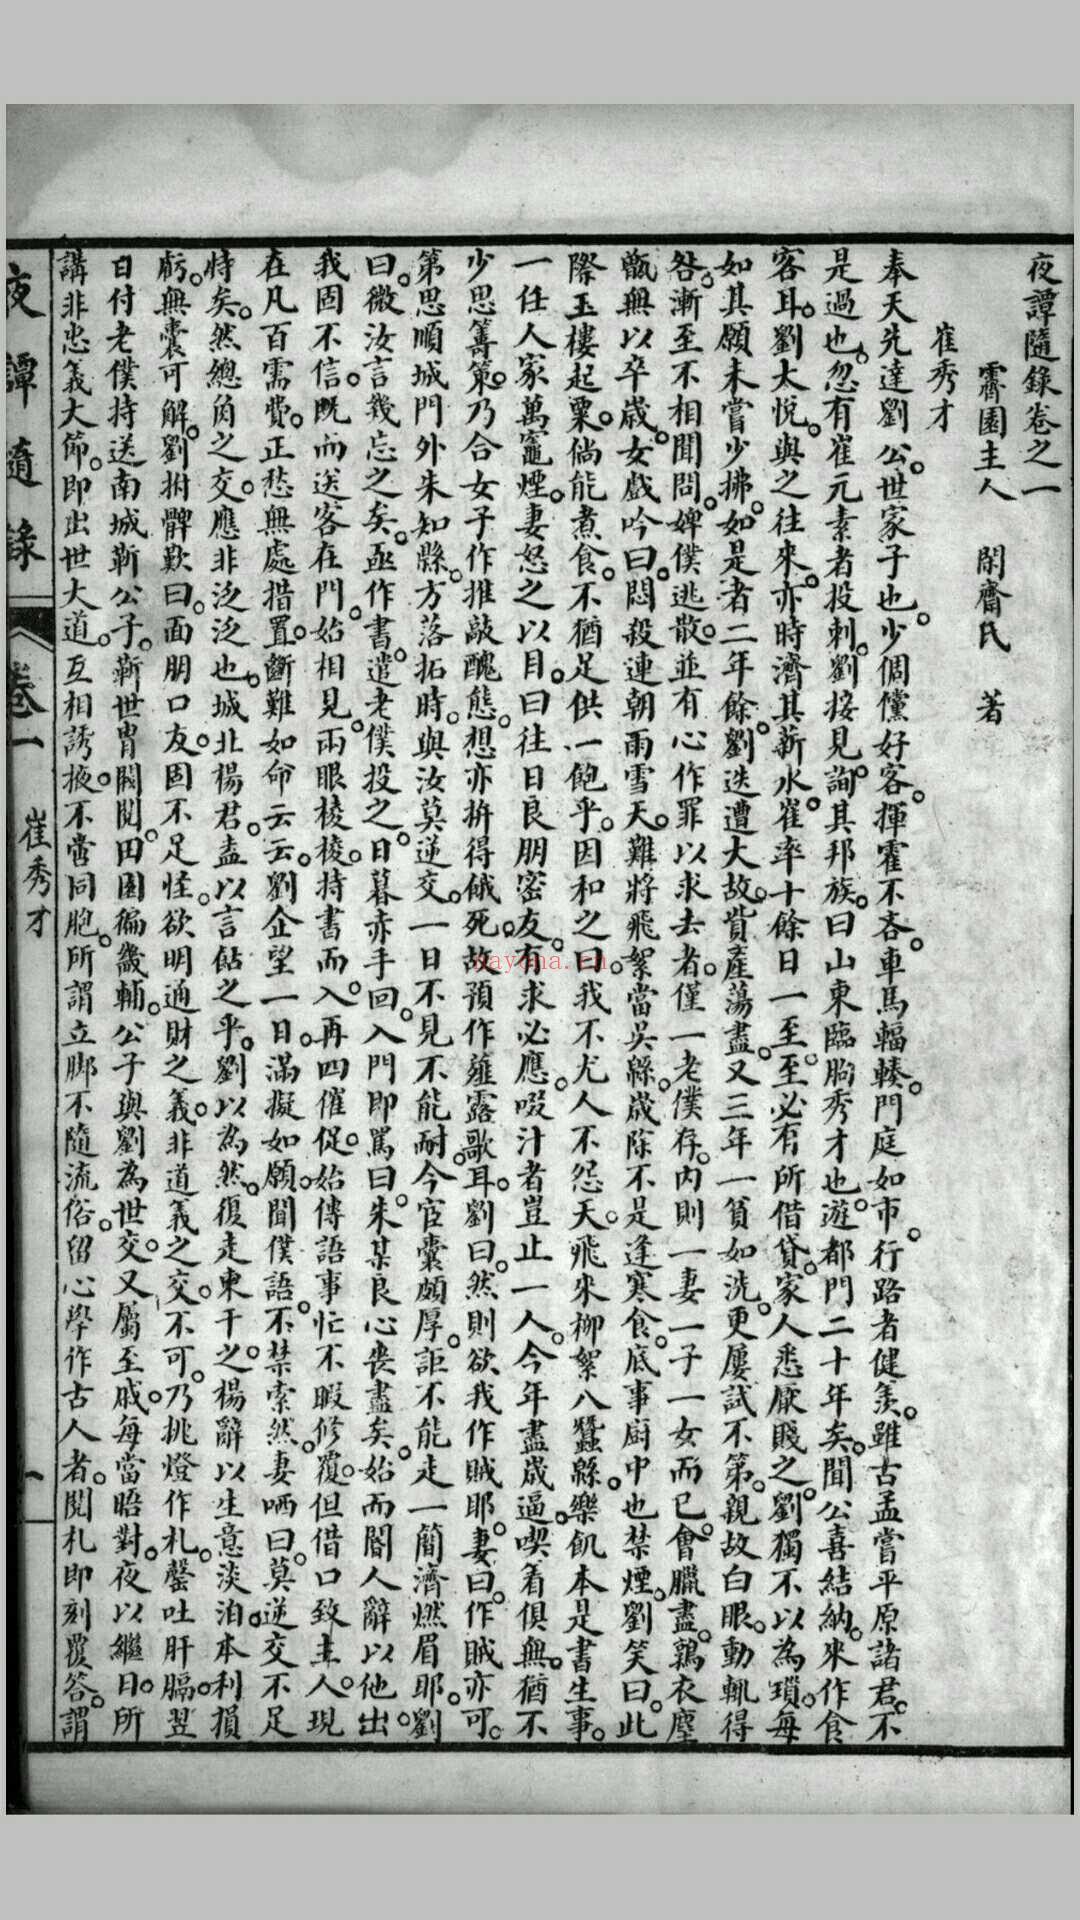 夜譚隨錄卷之一
霽園主人　閑齋氏　著
崔秀才
奉天先達劉公。世家子也。少倜儻好客。揮霍不吝。車馬輻輳。門庭如市。行路者健羨。雖古孟嘗平原諸君。不
是過也。忽有崔元素者投刺。劉接見。詢其邦族。曰山東臨朐秀才也。遊都門二十年矣。聞公喜結納。來作食
客耳。劉大悅。與之往來。亦時濟其薪水。崔率十餘日一至。至必有所借貸。家人悉厭賤之。劉獨不以為瑣。每
如其願。未嘗少拂。如是者二年餘。劉迭遭大故。貲產蕩盡。又三年一貧如洗。更屢試不第。親故白眼。動輒得
咎。漸至不相聞問。婢僕逃散。並有心作罪以求去者。僅一老僕存。內則一妻一子一女而已。會臘盡。鶉衣塵
甑。無以卒歲。女戲吟曰。悶殺連朝雨雪天。難將飛絮當吳綿。歲除不是逢寒食。底事廚中也禁煙。劉笑曰。此
際玉樓起粟。倘能煮食。不猶足供一飽乎。因和之曰。我不尤人不怨天。飛來柳絮八蠶綿。樂飢本是書生事。
一任人家萬竈煙。妻怒之以目。曰往日良朋密友。有求必應。啜汁者豈止一人。今年盡歲逼。喫着俱無。猶不
少思籌策。乃合女子作推敲醜態。想亦拚得餓死。故預作薤露歌耳。劉曰。然則欲我作賊耶。妻曰。作賊亦可。
第思順城門外朱知縣。方落拓時。與汝莫逆交。一日不見不能耐。今宦囊頗厚。詎不能走一簡濟燃眉耶。劉
曰。微汝言幾忘之矣。亟作書。遣老僕投之。日暮赤手回。入門即罵曰。朱某良心喪盡矣。始而閽人辭以他出。
我固不信。既而送客在門。始相見。兩眼棱棱。持書而入。再四催促。始傳語事忙不暇修覆。但借口致主人。現
在凡百需費。正愁無處措置。斷難如命云云。劉企望一日。滿擬如願。聞僕語。不禁索然。妻哂曰。莫逆交不足
恃矣。然總角之交。應非泛泛也。城北楊君。盍以言餂之乎。劉以為然。復走柬干之。楊辭以生意淡泊。本利損
虧。無囊可解。劉拊髀歎曰。面朋口友。固不足怪。欲明通財之義。非道義之交。不可。乃挑燈作札。罄吐肝膈。翌
日付老僕持送南城靳公子。靳世冑閥閱。田園徧畿輔。公子與劉為世交。又屬至戚。每當晤對。夜以繼日。所
講非忠義大節。即出世大道。互相誘掖。不啻同胞。所謂立腳不隨流俗。留心學作古人者。閱札即刻覆答。謂
夜譚隨錄
卷一　崔秀才